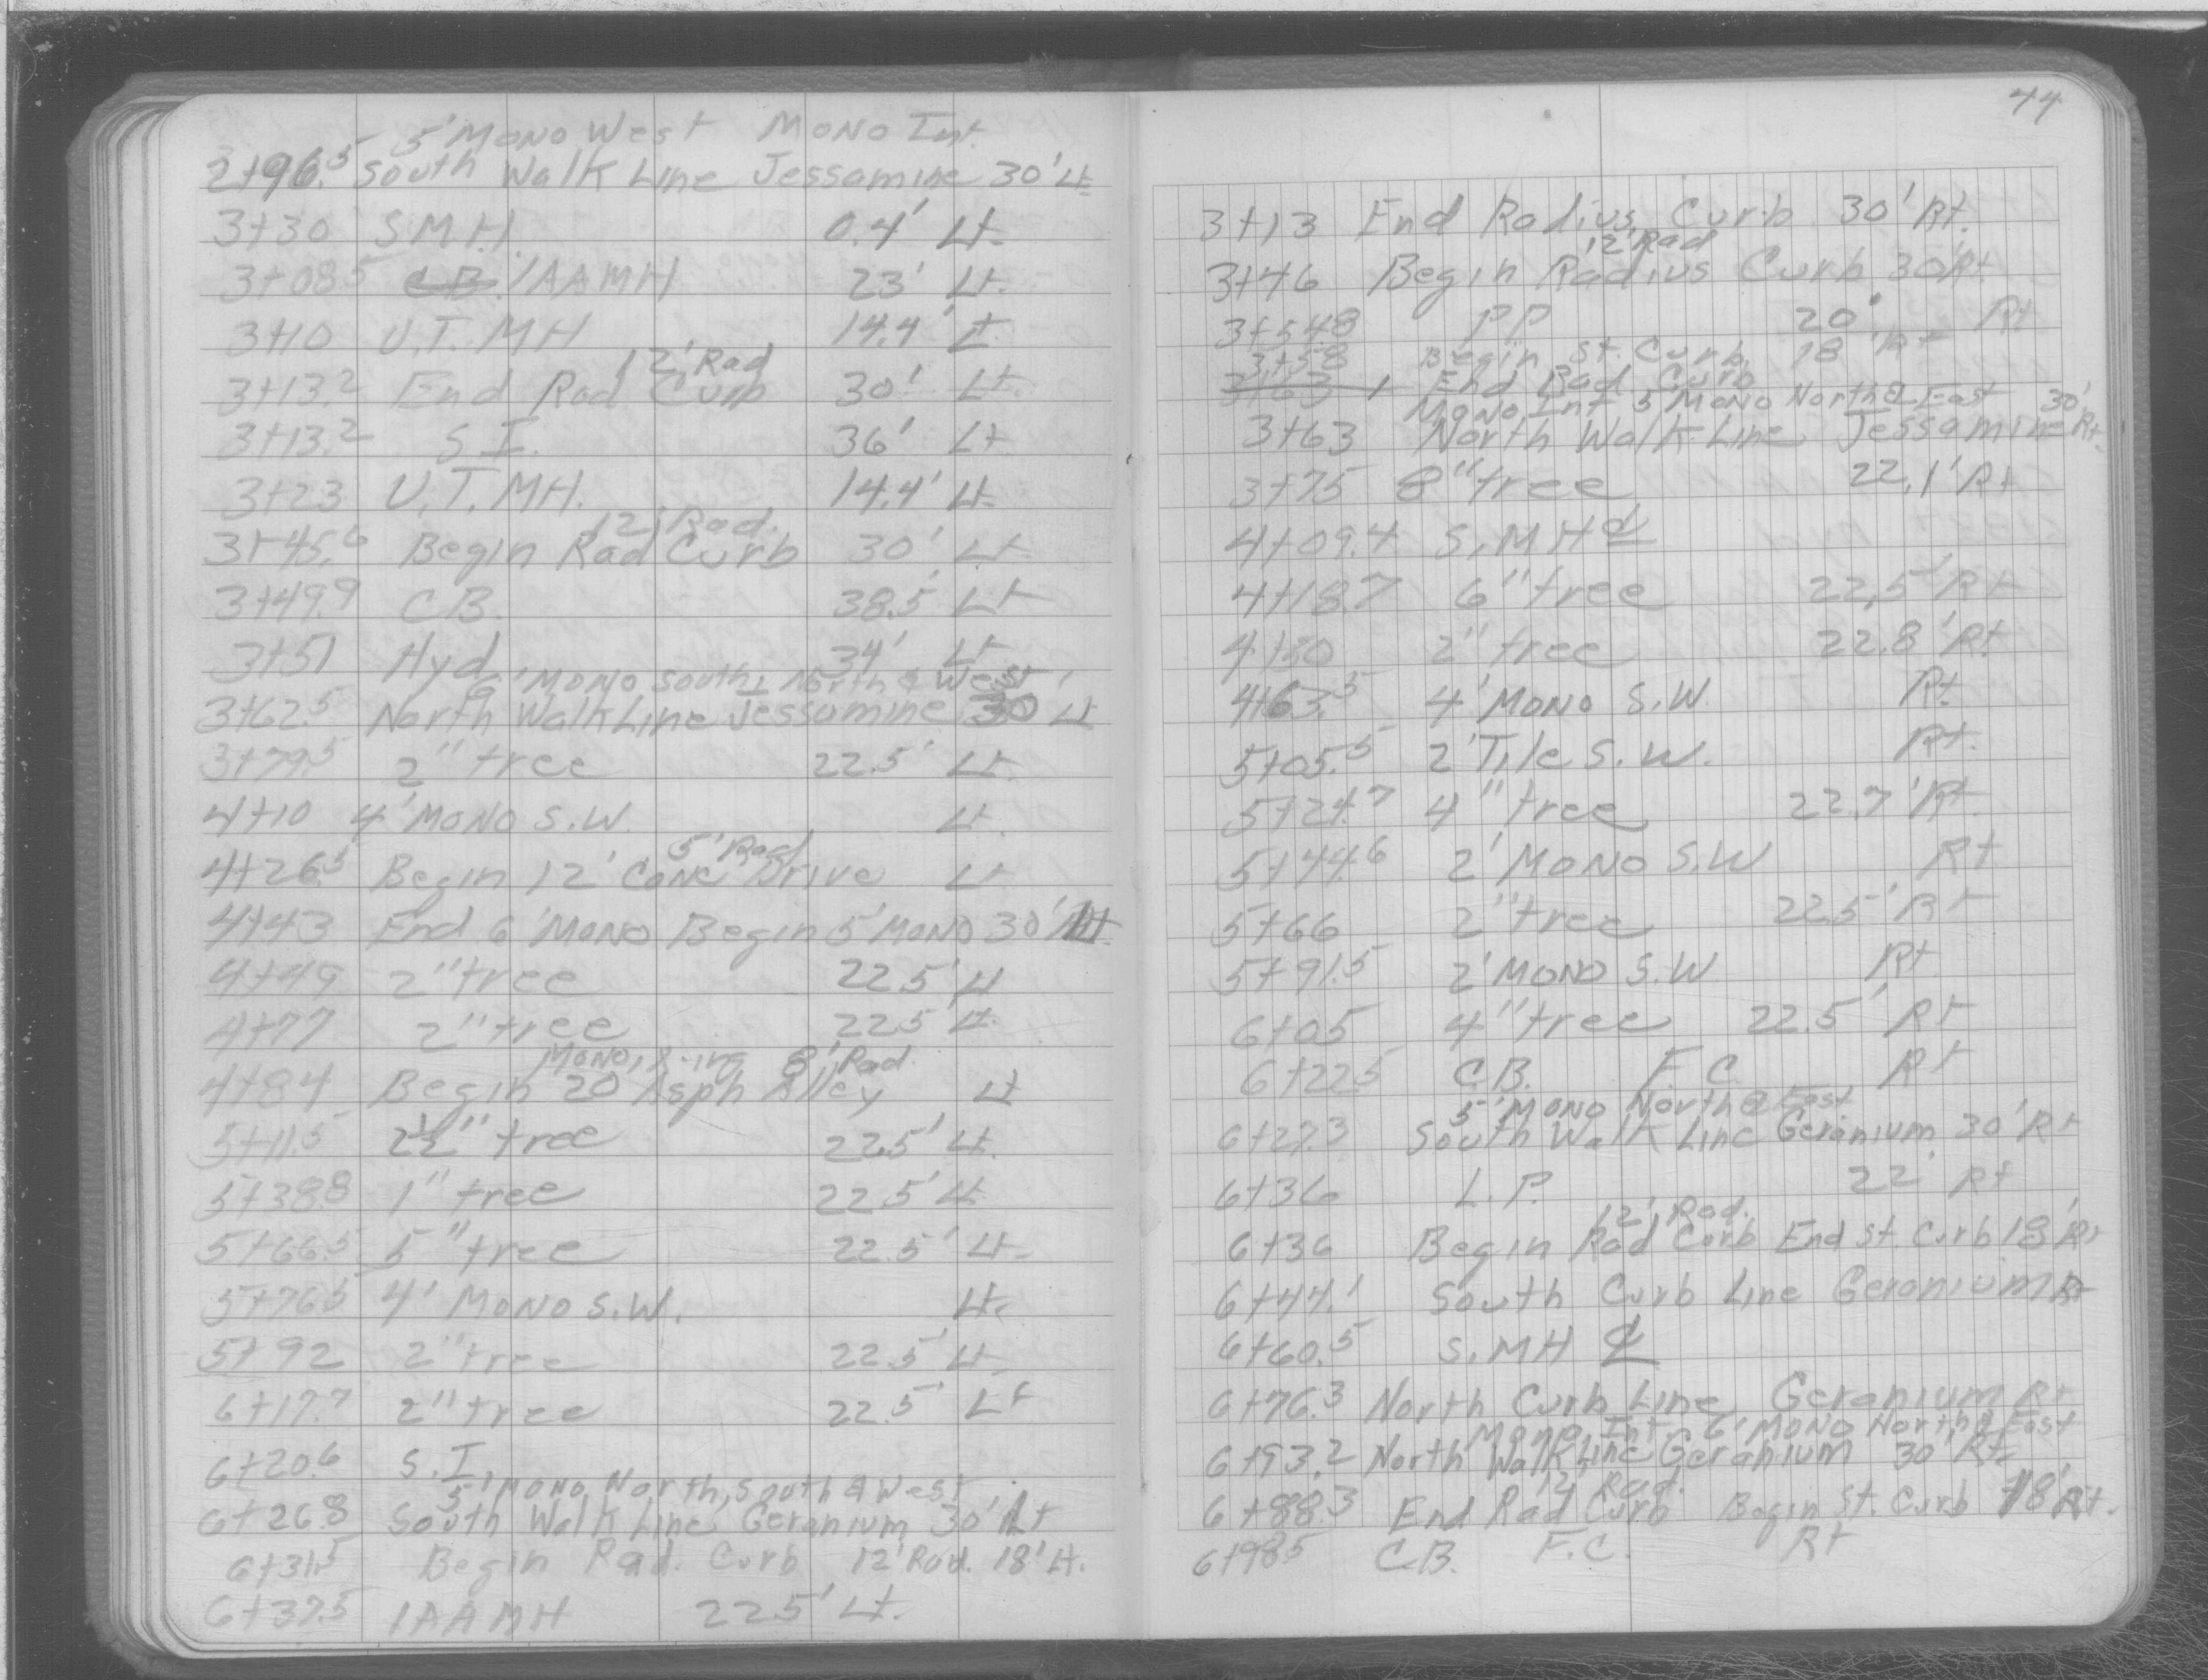 5' Mono West Mono Int.
2+96.5 South Walk Line Jessamine 30' Lt
3+30 S.M.H. 0.4' Lt.
3+08.5 C.B. 1AAMH 23' Lt.
3+10 U.T. MH 14.4' Lt.
12' Rad
3+13.2 End Rad Curb 30' Lt.
3+13.2 S.I. 36' Lt
3+23 U.T. MH. 14.4' Lt.
12' Rad.
3+45.6 Begin Rad Curb 30' Lt
3+49.9 C.B. 38.5' Lt
3+51 Hyd 34' Lt
6' Mono South, North & West
3+62.5 North Walk Line Jessamine 30' Lt
3+79.5 2" tree 22.5' Lt
4+10 4' Mono S.W. Lt.
5' Rad
4+26.5 Begin 12' Conc Drive Lt
4+43 End 6' Mono Begin 5' Mono 30' Lt.
4+49 2" tree 22.5' Lt
4+77 2" tree 22.5' Lt.
Mono, X-ing 8' Rad.
4+84 Begin 20' Asph Alley Lt
5+11.5 2½" tree 22.5' Lt.
5+38.8 1" tree 22.5' Lt
5+66.5 5" tree 22.5' Lt.
5+76.5 4' Mono S.W. Lt.
5+92 2" tree 22.5' Lt
6+17.7 2" tree 22.5' Lt
6+20.6 S.I.
5' Mono North, South & West
6+26.8 South Walk Line Geranium 30' Lt
6+31.5 Begin Rad. Curb 12' Rad. 18' Lt.
6+37.5 1AAMH 22.5' Lt.
44
3+13 End Radius Curb 30' Rt.
12' Rad
3+46 Begin Radius Curb 30' Rt
3+54.8 PP 20' Rt
3+58 Begin St. Curb 18' Rt
3+63 End Rad Curb
Mono Int 5' Mono North & East 30'
3+63 North Walk Line Jessamine Rt.
3+75 8" tree 22.1' Rt
4+09.4 S.MH ℄
4+18.7 6" tree 22.5' Rt
4+30 2" tree 22.8' Rt
4+63.5 4' Mono S.W. Rt
5+05.5 2' Tile S.W. Rt.
5+24.7 4" tree 22.7' Rt.
5+44.6 2' Mono S.W Rt
5+66 2" tree 22.5' Rt
5+91.5 2' Mono S.W Rt
6+05 4" tree 22.5' Rt
6+22.5 C.B. F.C. Rt
5' Mono North & East
6+27.3 South Walk Line Geranium 30' Rt
6+36 L.P. 22' Rt
12' Rad.
6+36 Begin Rad Curb End St. Curb 18' Rt
6+44.1 South Curb Line Geranium Rt
6+60.5 S.MH ℄
6+76.3 North Curb Line Geranium Rt
Mono Int 6' Mono North & East
6+93.2 North Walk Line Geranium 30' Rt
12' Rad.
6+88.3 End Rad Curb Begin St. Curb 18' Rt.
6+98.5 C.B. F.C. Rt